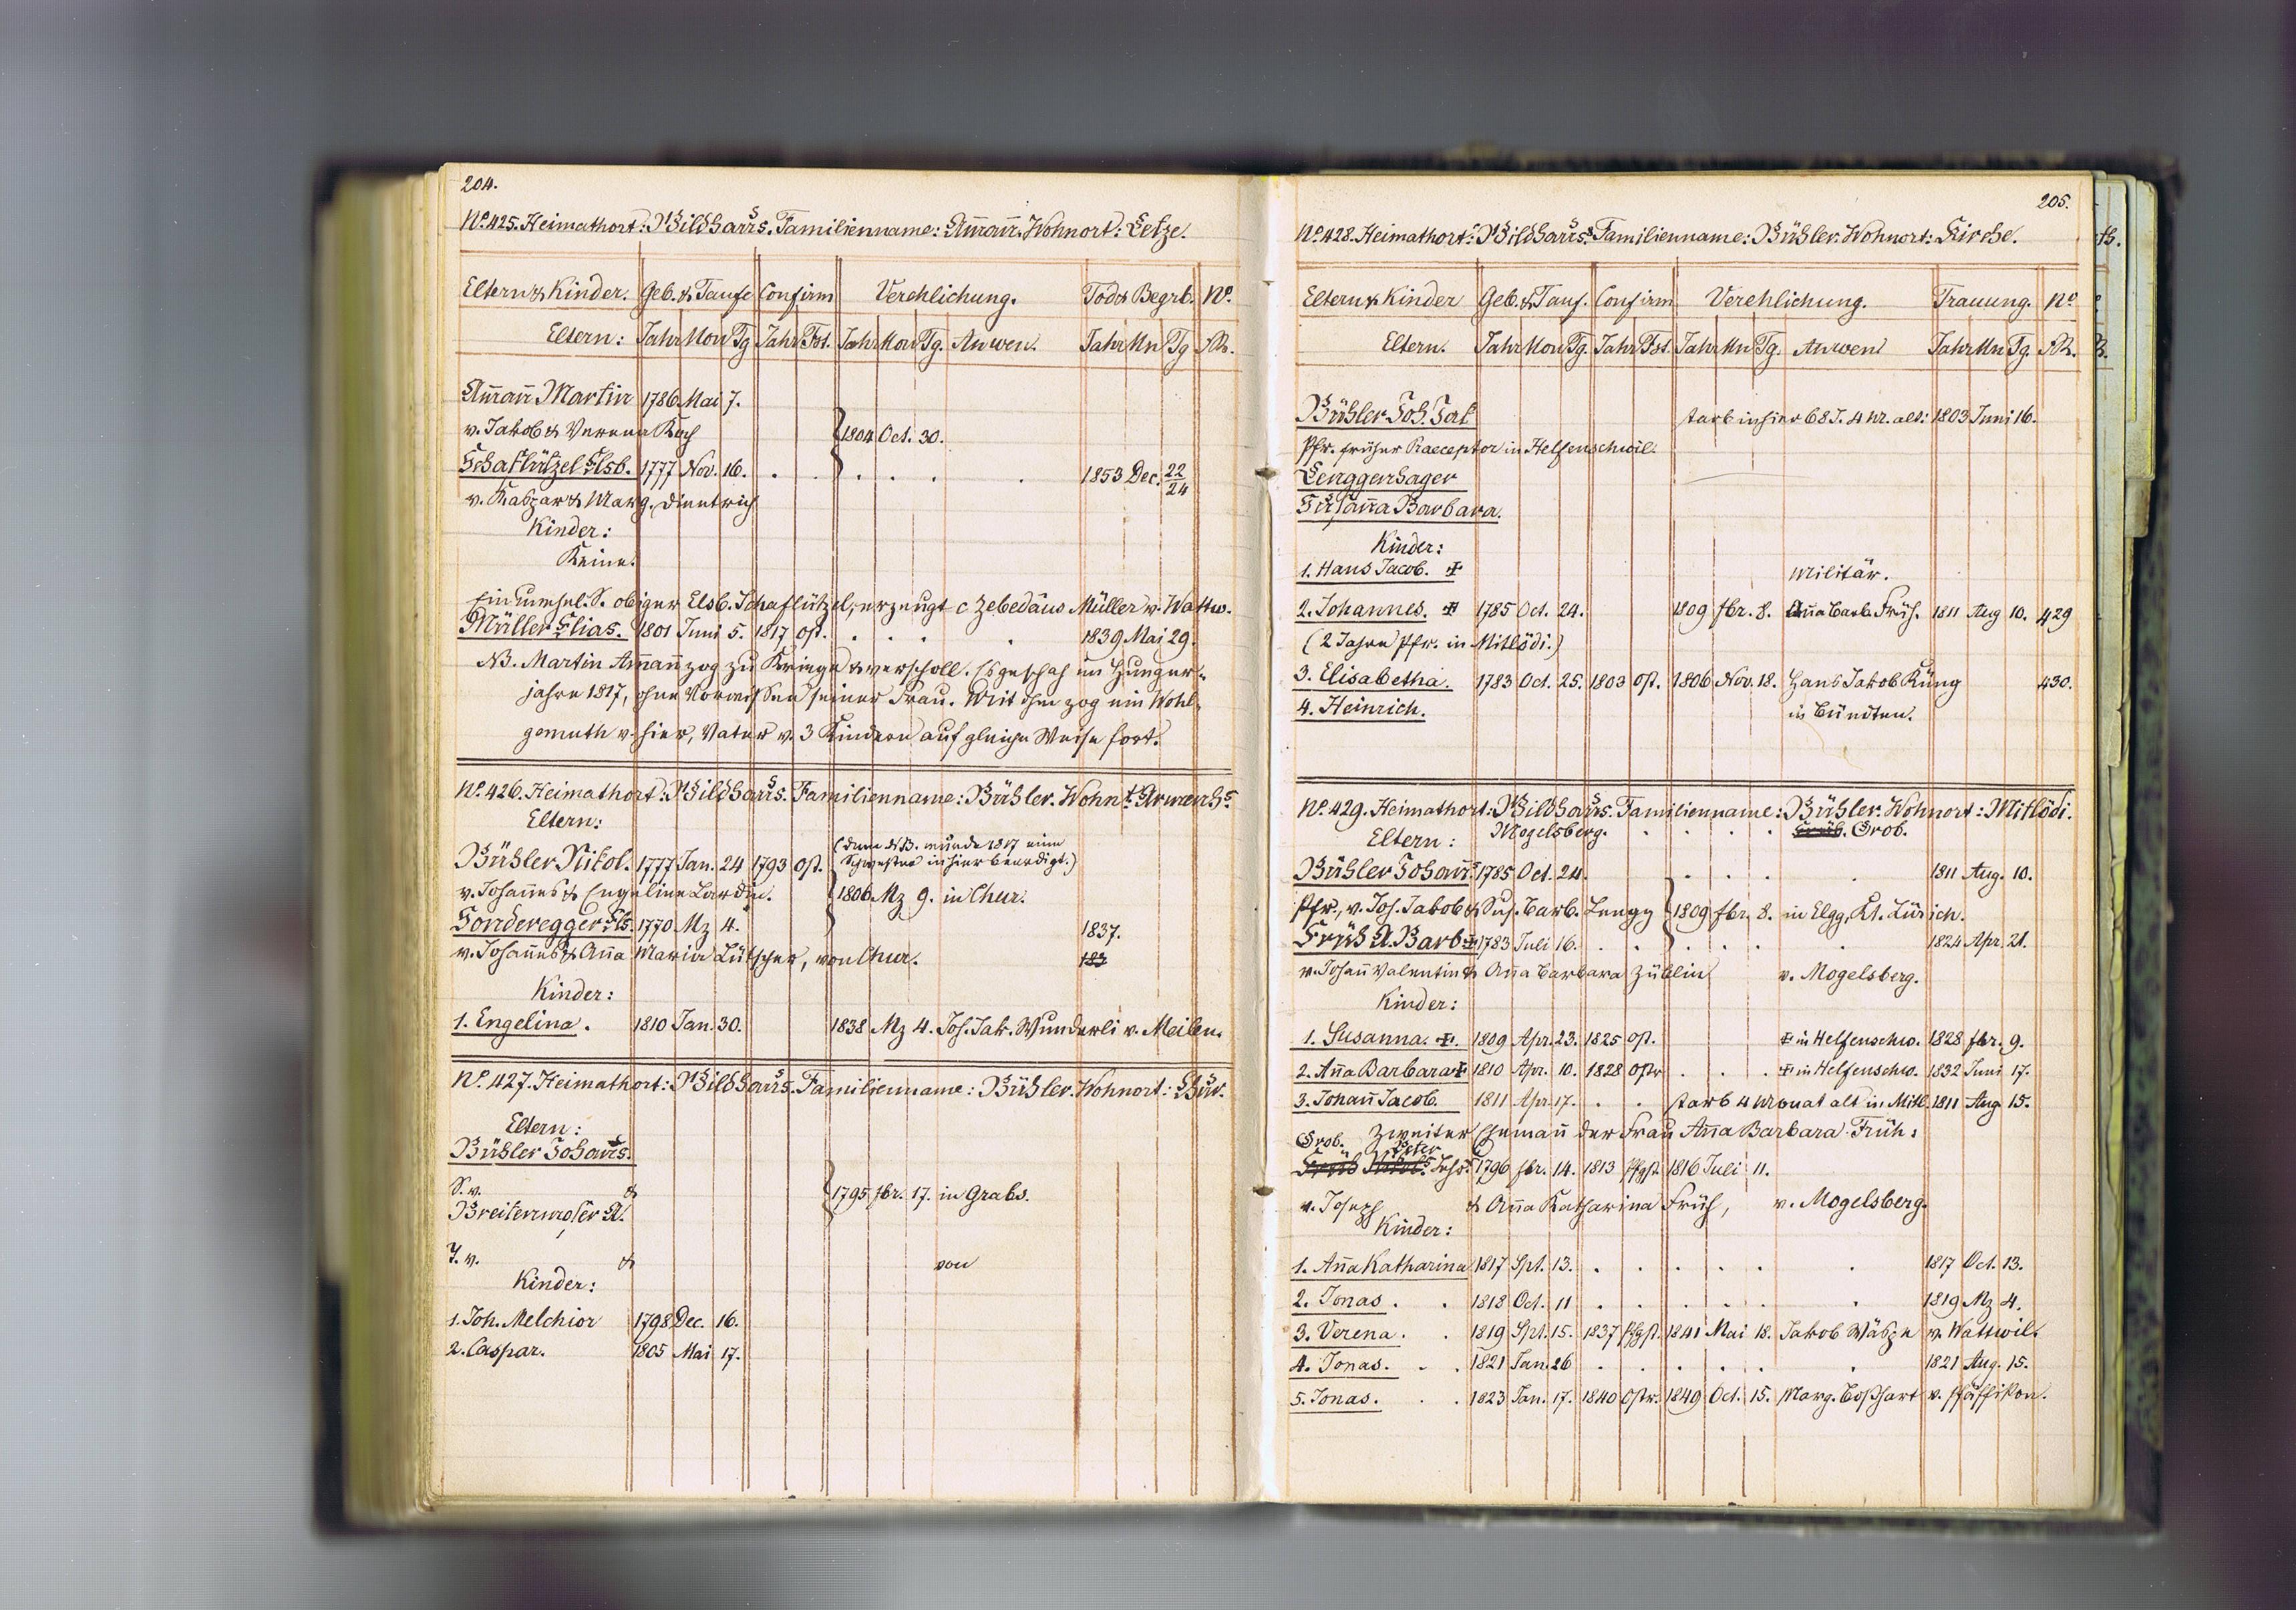 204.
No. 425. Heimathort: Wildhaus. Familienname: Am̄an̄. Wohnort: Letze.
Eltern & Kinder. Geb. & Taufe Confirm Verehlichung. Tod & Begrb. No.
Eltern: Jahr Mon Tg Jahr Fst. Jahr Mon Tg. Anwen. Jahr Mn Tg
Am̄an̄ Martin 1786 Mai 7.
v. Jakob & Verena Koch 1804 Oct. 30.
Schaflützel Elsb. 1777 Nov. 16. . . . . . . 1853 Dec. 22/24
v. Kaspar & Marg. Dientrich
Kinder:
Keine.
Ein unehel. S. obiger Elsb. Schaflützel, erzeugt c Zebedäus Müller v. Wattw.
Müller Elias. 1801 Juni 5. 1817 Ost. . . . . 1839 Mai 29.
NB. Martin Am̄an̄ zog zu Kriege & verscholl. Es geschah im Hunger-
jahre 1817, ohne Vorwissen seiner Frau. Mit ihm zog ein Wohl-
gemuth v. hier, Vater v. 3 Kindern auf gleiche Weise fort.
No. 426. Heimathort: Wildhaus. Familienname: Bühler. Wohnt: Armenhs.
Eltern:
(Dem NB. wurde 1817 eine
Bühler Nikol. 1777 Jan. 24 1793 Ost. Schwester in hier beerdigt.)
v. Johan̄es & Engeline Lardin. 1806 Mz 9. in Chur.
Sonderegger Els. 1770 Mz 4. 1837.
v. Johan̄es & An̄a Maria Lütscher, von Chur. 183
Kinder:
1. Engelina. 1810 Jan. 30. 1838 Mz 4. Joh. Jak. Wunderli v. Meilen.
No. 427. Heimathort: Wildhaus. Familienname: Bühler. Wohnort:
Eltern:
Bühler Johan̄s.
S. v. & 1795 fbr. 17. in Grabs.
Breitenmoser A.
T. v. & von
Kinder:
1. Joh. Melchior 1798 Dec. 16.
2. Caspar. 1805 Mai 17.
205.
No. 428. Heimathort: Wildhaus. Familienname: Bühler. Wohnort: Kirche.
Eltern & Kinder Geb. & Tauf. Confirm Verehlichung. Trauung. No
Eltern. Jahr Mon Tg. Jahr Fst. Jahr Mn Tg. Anwend Jahr Mn Tg.
Bühler Joh. Jak starb in hier 68 J. 4 M. alt: 1803 Juni 16.
Pfr. früher Praeceptor in Helfenschwil.
Lenggenhager
Susan̄a Barbara.
Kinder:
1. Hans Jacob. ✠ Militär.
2. Johannes. ✠ 1785 Oct. 24. 1809 fbr. 8. An̄a Barb. Früh. 1811 Aug 10. 429
(2 Jahre Pfr. in Mitlödi.)
3. Elisabetha. 1783 Oct. 25. 1803 Ost. 1806 Nov. 18. Hans Jakob Küng 430.
4. Heinrich. in Bündten.
No. 429. Heimathort: Wildhaus. Familienname: Bühler. Wohnort: Mitlödi.
Eltern: Mogelsberg. . . . . Grob.
Bühler Johan̄s 1785 Oct. 24. . . . . 1811 Aug. 10.
Pfr., v. Joh. Jakob & Sus. Barb. Lengg 1809 fbr. 8. in Elgg, Kt. Zürich.
Früh A. Barb ✠ 1783 Juli 16. . . . . . 1824 Apr. 21.
v. Johan̄ Valentin & An̄a Barbara Züblin v. Mogelsberg.
Kinder:
1. Susanna. ✠. 1809 Apr. 23. 1825 Ost. ✠ in Helfenschw. 1828 fbr. 9.
2. An̄a Barbara ✠ 1810 Apr. 10. 1828 Ostr . . . ✠ in Helfenschw. 1832 Juni 17.
3. Johan̄ Jacob. 1811 Apr. 17. . . starb 4 Monat alt in Mitl. 1811 Aug 15.
Zweiter Eheman̄ der Frau An̄a Barbara Früh:
Grob. Peter
Johs. 1796 fbr. 14. 1813 Pfgst. 1816 Juli 11.
v. Joseph & An̄a Katharina Früh, v. Mogelsberg.
Kinder:
1. An̄a Katharina 1817 Spt. 13. . . . . . . 1817 Oct. 13.
2. Jonas . . 1818 Oct. 11 . . . . . . 1819 Mz 4.
3. Verena . . 1819 Spt. 15. 1837 Pfgst. 1841 Mai 18. Jakob Wäspe v. Wattwil.
4. Jonas. . . 1821 Jan. 26 . . . . . . 1821 Aug. 15.
5. Jonas. . . 1823 Jan. 17. 1840 Ostr. 1849 Oct. 15. Marg. Boßhart v. Pfäffikon.